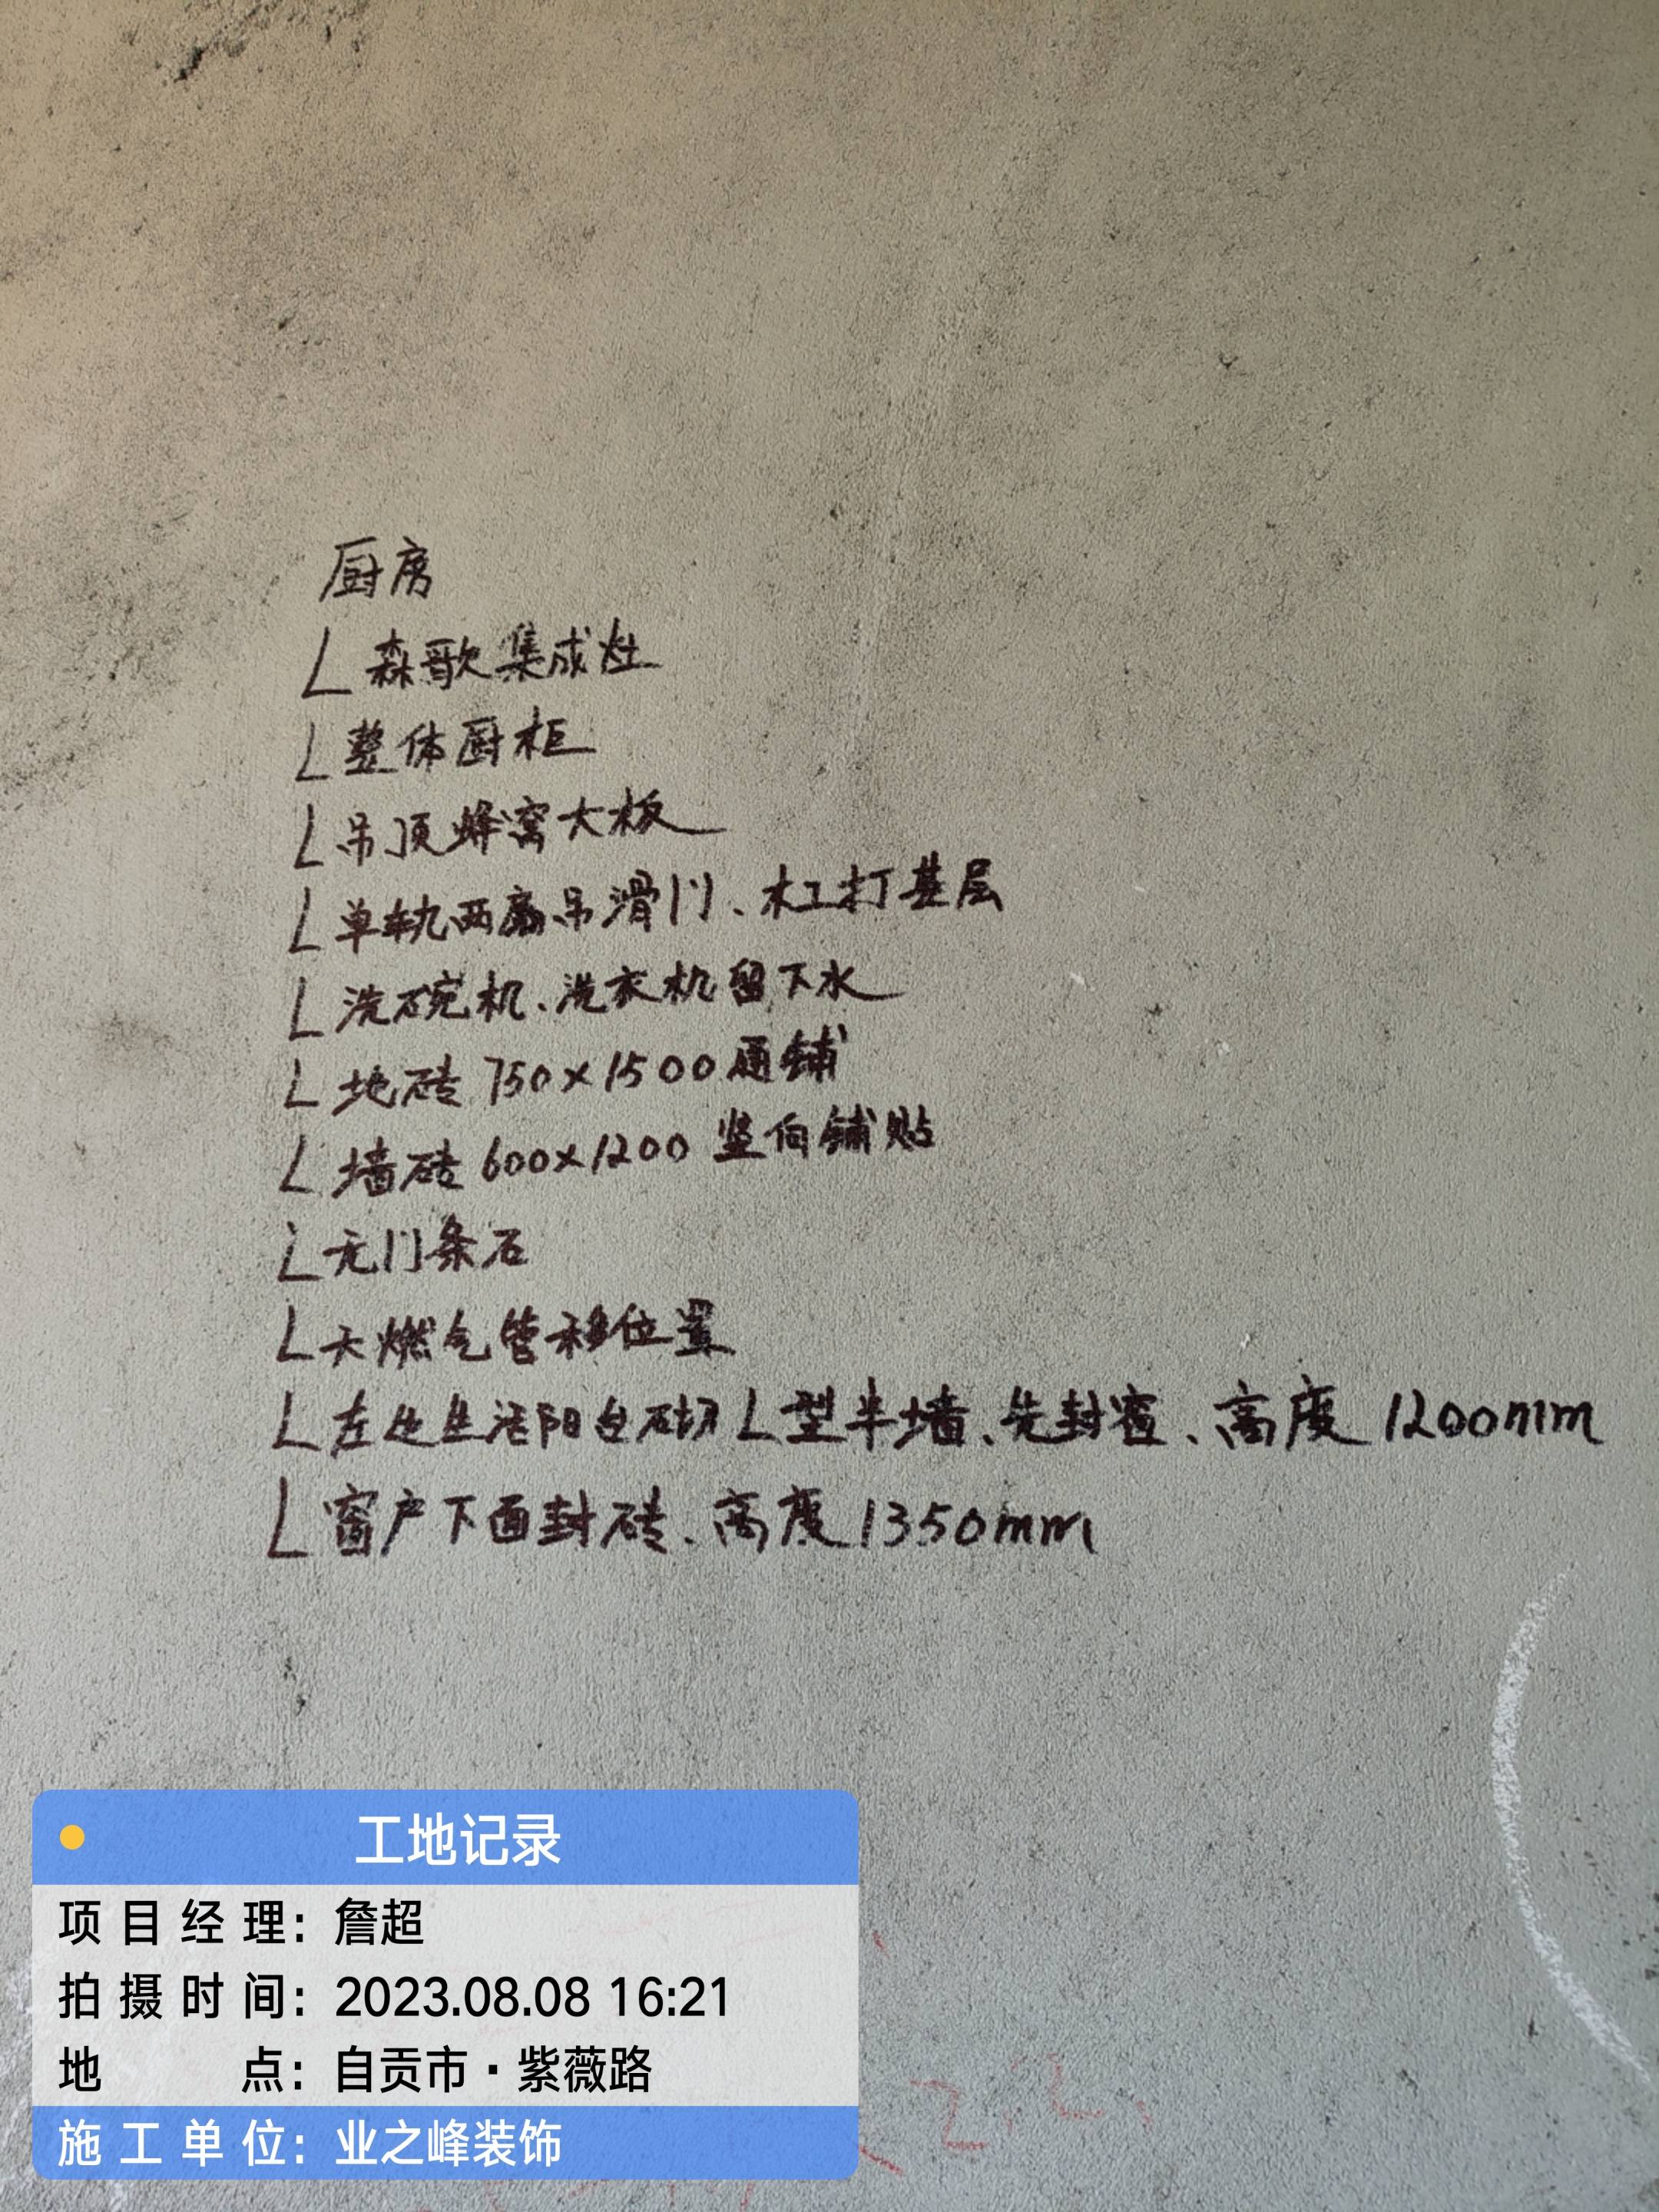 厨房
L 森歌集成灶
L 整体厨柜
L 吊顶蜂窝大板
L 单轨两扇吊滑门、木工打基层
L 洗碗机、洗衣机留下水
L 地砖 750×1500 通铺
L 墙砖 600×1200 竖向铺贴
L 无门条石
L 天燃气管移位置
L 左边生活阳台砌L型半墙、先封窗、高度1200mm
L 窗户下面封砖、高度1350mm
工地记录
项目经理：詹超
拍摄时间：2023.08.08 16:21
地点：自贡市·紫薇路
施工单位：业之峰装饰